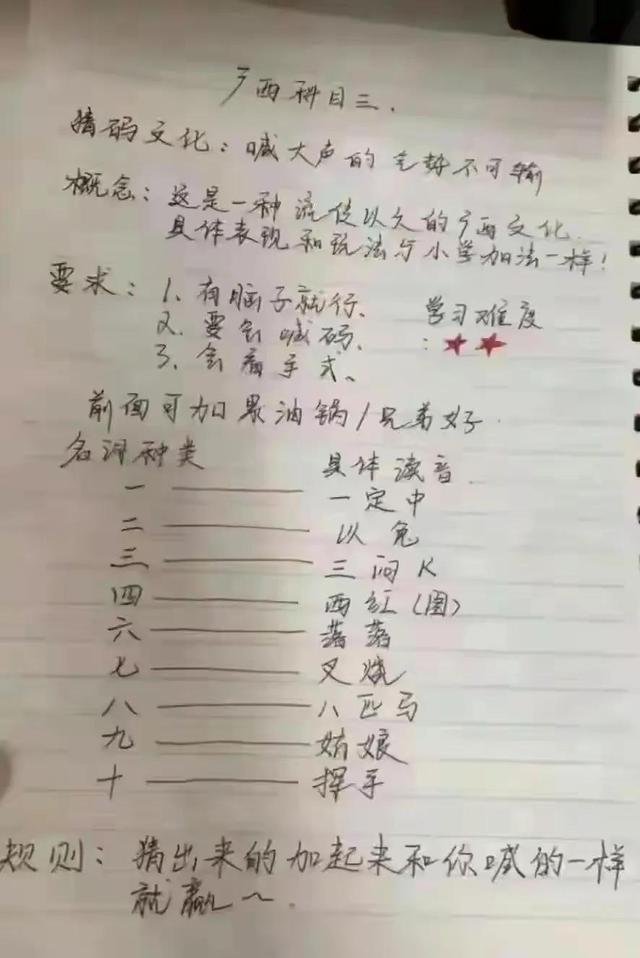 广西科目三.
猜码文化:喊大声的气势不可输
概念:这是一种流传以久的广西文化.
具体表现和玩法与小学加法一样!
要求:1、有脑子就行、
学习难度
2、要会喊码、
:★★
3、会看手式、
前面可加果油锅/兄弟好.
名词种类
具体读音
一 —— 一定中
二 —— 以兔
三 —— 三闷K
四 —— 西红(图)
六 —— 落落
七 —— 叉烧
八 —— 八匹马
九 —— 姑娘
十 —— 挥手
规则:猜出来的加起来和你喊的一样
就赢~.